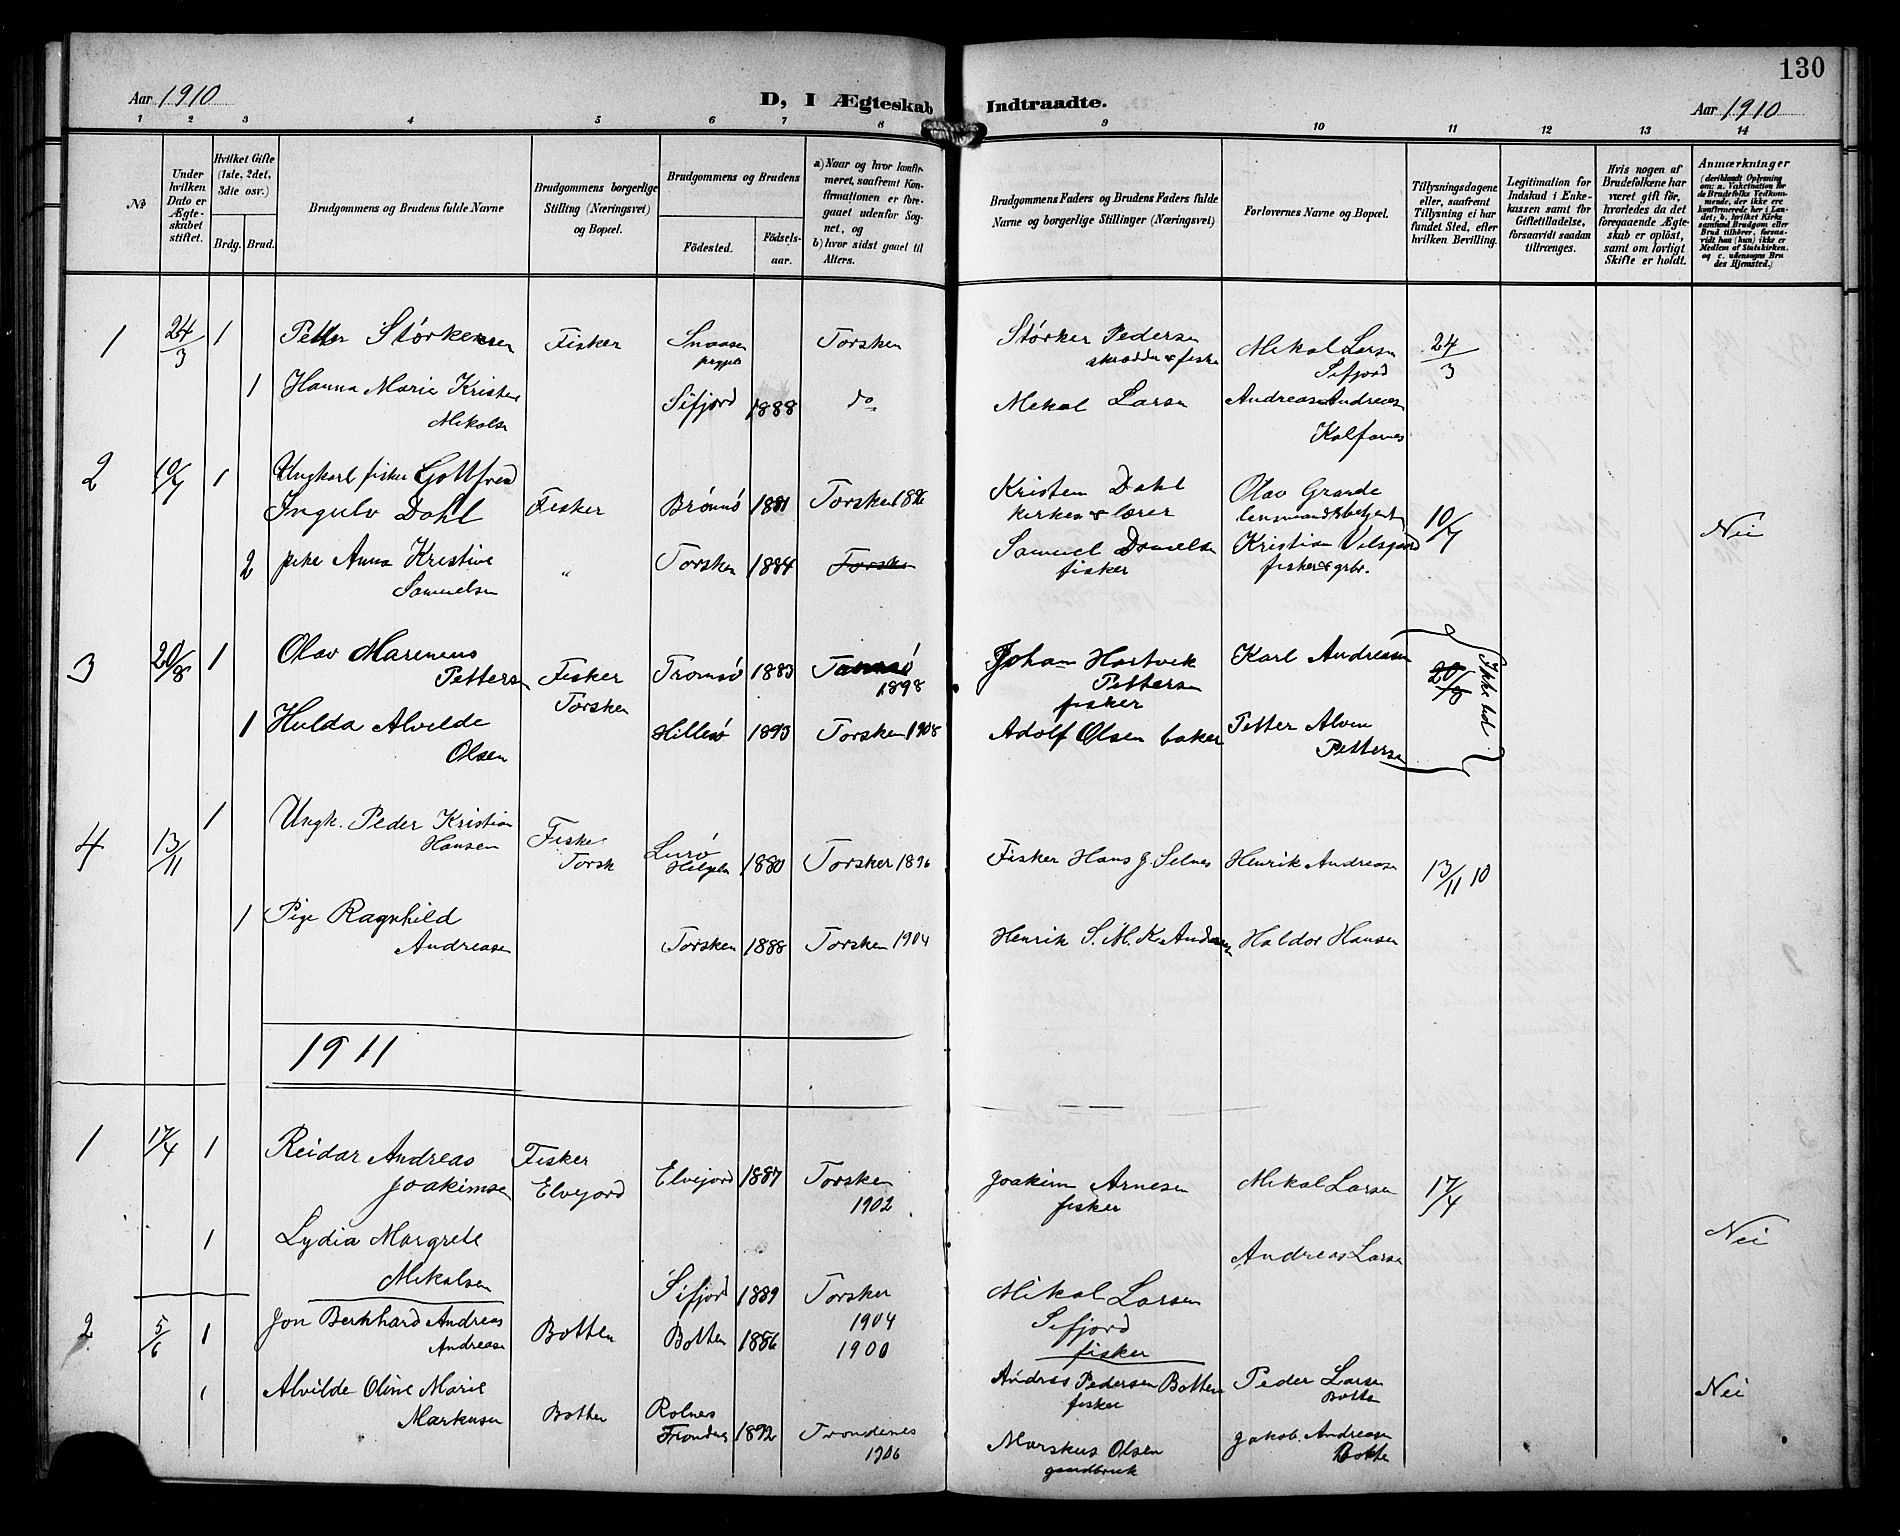 130
Aar 1910
D, I Ægteskab Indtraadte.
Aar 1910
1 2 3 4 5 6 7 8 9 10 11 12 13 14
№
Under hvilken Dato er Ægteskabet stiftet.
Hvilket Gifte (1ste, 2det, 3die osv.)
Brdg. Brud.
Brudgommens og Brudens fulde Navne
Brudgommens borgerlige Stilling (Næringsvei) og Bopæl.
Brudgommens og Brudens
Fødested.
Fødsels-aar.
a) Naar og hvor konfirmeret, saafremt Konfirmationen er foregaaet udenfor Sognet, og
b) hvor sidst gaaet til Alters.
Brudgommens Faders og Brudens Faders fulde Navne og borgerlige Stillinger (Næringsvei)
Forlovernes Navne og Bopæl.
Tillysningsdagene eller, saafremt Tillysning ei har fundet Sted, efter hvilken Bevilling.
Legitimation for Indskud i Enkekassen samt for Giftetilladelse, forsaavidt saadan tiltrænges.
Hvis nogen af Brudefolkene har været gift før, hvorledes da det foregaaende Ægteskab er opløst, samt om lovligt Skifte er holdt.
Anmærkninger
(deriblandt Oplysning om: a. Vakcination for de Brudefolks Vedkommende, der ikke ere konfirmerede her i Landet; b. hvilket Kirkesamfund Brudgom eller Brud tilhører, forsaavidt han (hun) ikke er Medlem af Statskirken. og c. udensogns Brudes Hjemsted.)
1 24/3 1 Petter Størkersen Fisker Snaasen Torsken Størker Pedersen Mikal Larsen 24/3
Sifjord
1 Hanna Marie Kristine Sifjord 1888 do Mekal Larsen Andreas Andreasen
Mikalsen
2 10/7 1 Ungkarl fisker Gottfred
Ingulv Dahl Fisker Brønnø 1881 Torsken 1896 Kristen Dahl Olav Grande 10/7 Nei
2 pike Anna Kristine " Torsken 1884 Torsken Samuel Danielsen Kristian
Samuelsen fisker fisker & grbr.
3 20/8 1 Olav Marenius
Pettersen Fisker Tromsø 1883 Tromsø Johan Hartvik Karl Andreasen 20/8
Torsken 1898 Pettersen
fisker
1 Hulda Alvilde Hillesø 1893 Torsken 1908 Adolf Olsen baker Petter Alvin
Olsen Pettersen
4 13/11 1 Ungk. Peder Kristian
Hansen Fisker Lurø 1880 Torsken 1896 Fisker Hans J. Selnes Henrik Andreasen 13/11 10
Torsk
1 Pige Ragnhild
Andreasen Torsken 1888 Torsken 1904 Henrik S. M. K. Andreasen Haldor Hansen
1911
1 17/4 1 Reidar Andreas Fisker
Joakimsen Elvejord Elvejord 1887 Torsken Joakim Arnesen Mikal Larsen 17/4
1902 fisker
1 Lydia Margrete Andreas Larsen Nei
Mikalsen Sifjord 1889 Torsken Mikal Larsen
1904 Sifjord
fisker
2 5/6 1 Jon Berkhard Andreas
Andreasen Botten Botten 1886 1900 Andreas Pedersen Botten Peder Larsen Nei
fisker Botten
1 Alvilde Oline Marie
Markusen Botten Rolnes 1892 Trondenes Marskus Olsen Jakob Andreasen
Trondnes 1906 gaardbruk Botten